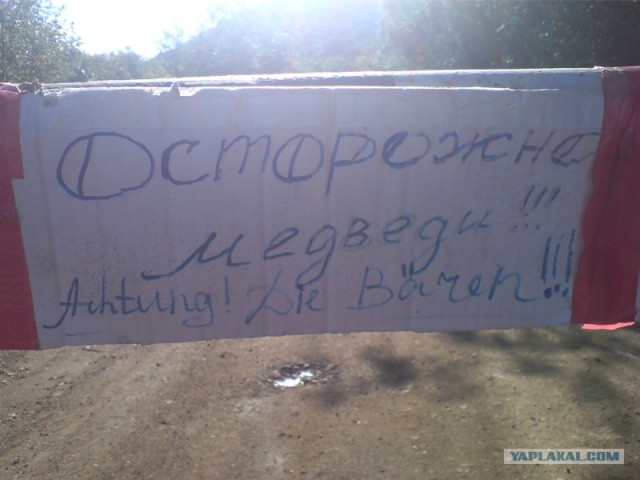 Осторожно
медведи!!!
Achtung! Die Bären!!!
YAPLAKAL.COM